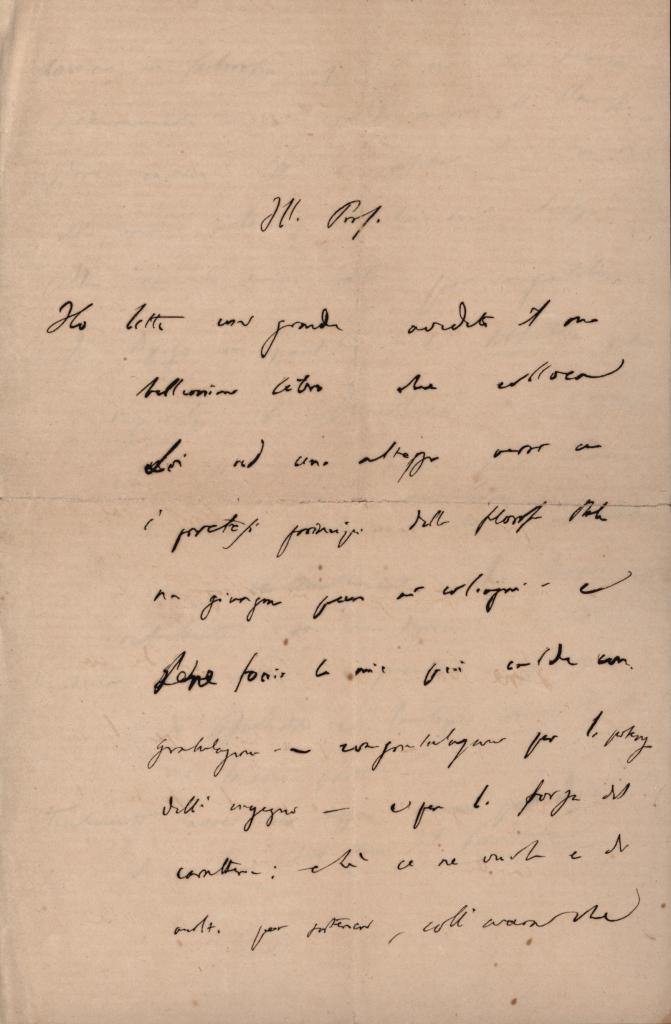 Ill. Prof.
Ho letto con grande avidità il suo
bellissimo libro che colloca
Lei ad una altezza verso cui
i pretesi principi della filosof
non giungon pur coi e
Gliene faccio le mie più calde con
gratulazioni — congratulazioni per la potenza
dell'ingegno — e per la forza del
carattere; chè ce ne vuole e di
molt. per sostenere, coll' che